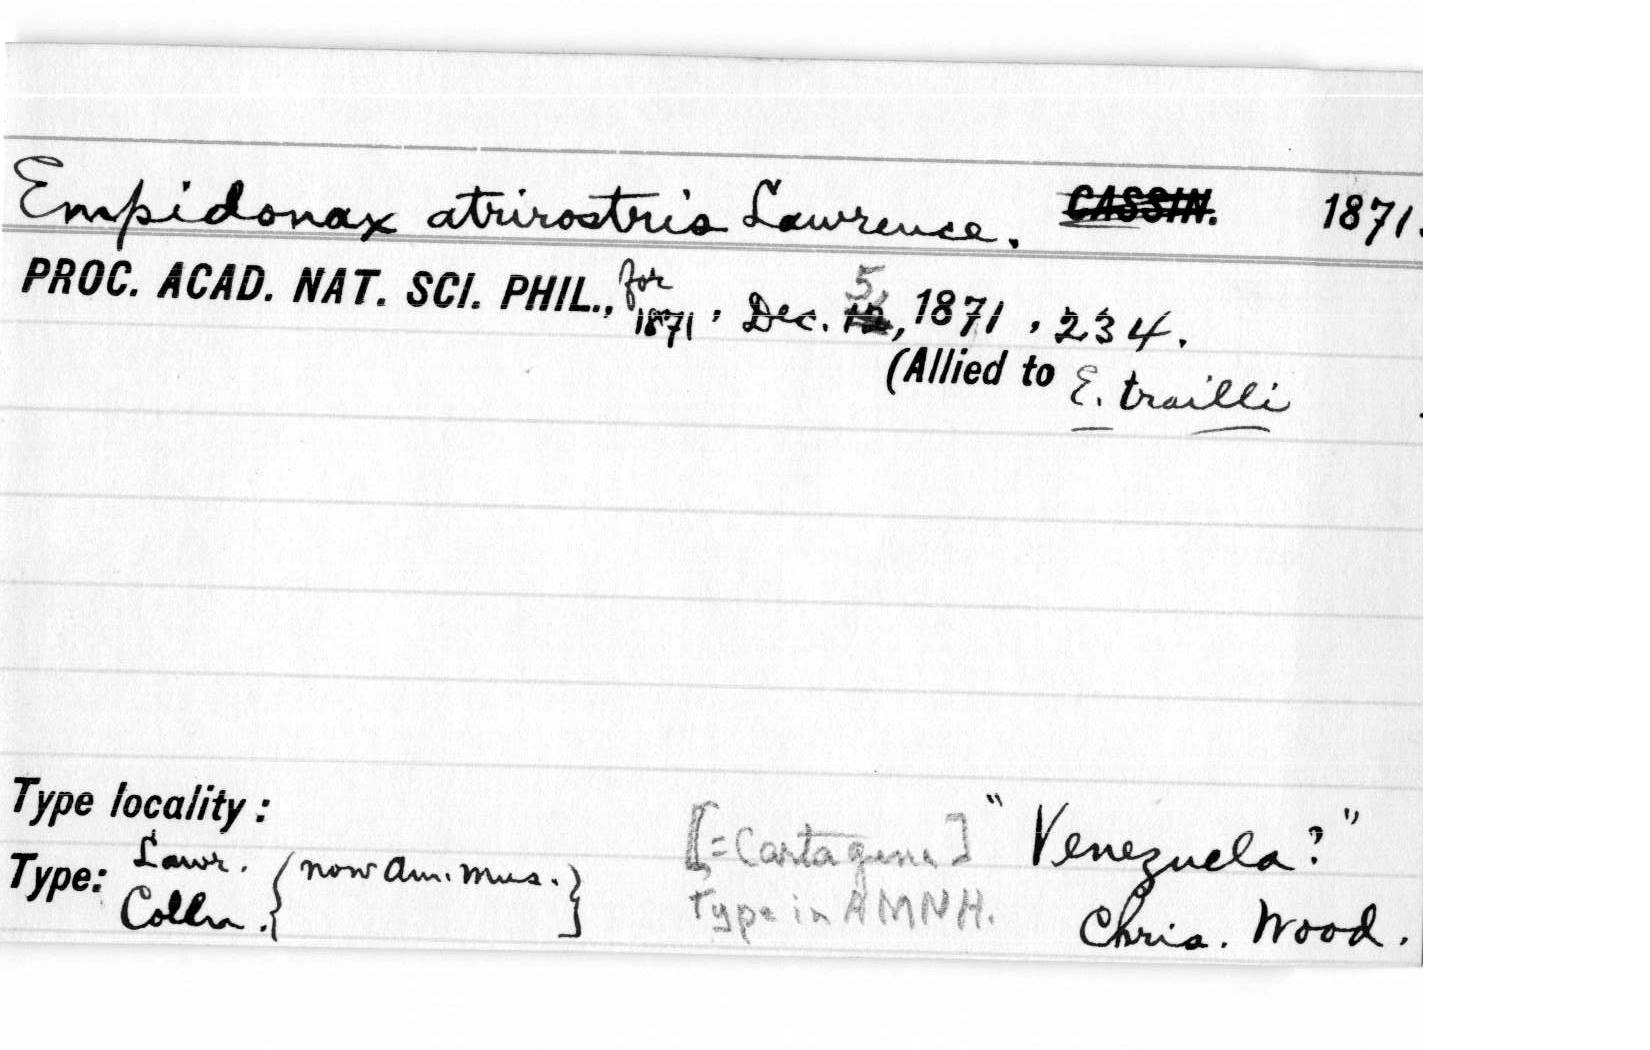 Empidonax atrirostris Lawrence. CASSIN. 1871.
PROC. ACAD. NAT. SCI. PHIL., for 1871, Dec. 12, 5, 1871, 234.
(Allied to E. trailli
Type locality: [=Cartagena] "Venezuela?"
Type: Lawr. Colln. {now Am. Mus.} Type in AMNH. Chris. Wood.